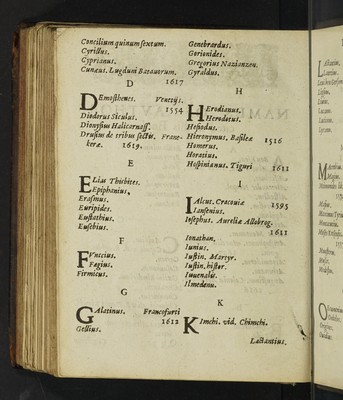 Concilium quinumsextum.
Cyrillus.
Cyprianus.
Cunæus. Lugduni Batavorum.
1617
D
Demosthenes. Venetijs.
1554
Diodorus Siculus.
Dionysius Halicarnass.
Drusius de tribus sectis. Frane-
keræ. 1619.
E
Elias Thisbites.
Epiphanius.
Erasmus.
Euripides.
Eustathius.
Eusebius.
F
Fagius.
Firmicus.
G
Galatinus. Francofurti
1612
Gellius.
Genebrardus.
Gorionides.
Gregorius Nazianzen.
Gyraldus.
H
Herodianus.
Herodotus.
Hesiodus.
Hieronymus. Basileæ
1516
Homerus.
Horatius.
Hospinianus. Tiguri
1611
I
Ialcut. Cracoviæ 1595
Iansenius.
Iosephus. Aureliæ Allobrog.
1611
Ionathan.
Iunius.
Iustin. Martyr.
Iustin. histor.
Iuuenalis.
Ilmedenu.
K
Kimchi. vid. Chimchi.
Lactantius.